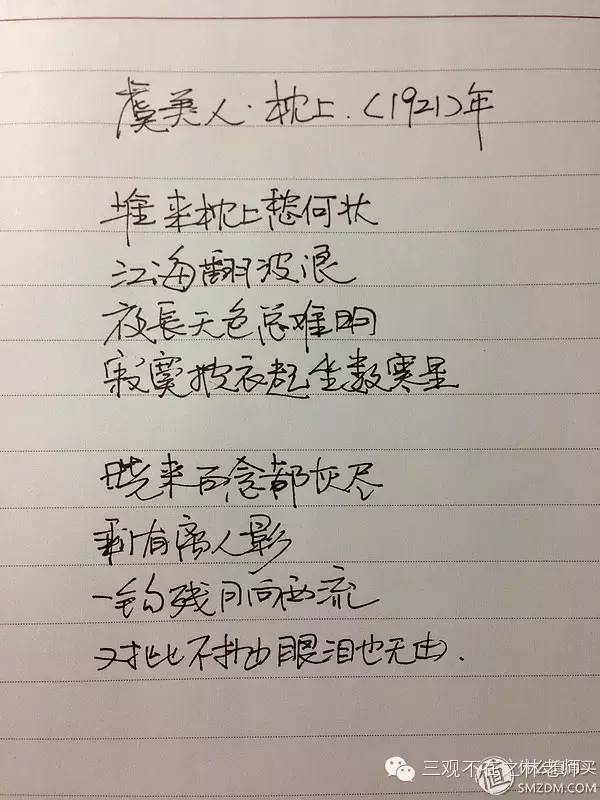 虞美人·枕上.（1921）年
堆来枕上愁何状
江海翻波浪
夜長天色总难明
寂寞披衣起坐数寒星
晓来百念都灰尽
剩有离人影
一钩残月向西流
对此不抛眼泪也无由.
三观不在之林老师
值 什么值得买
SMZDM.COM